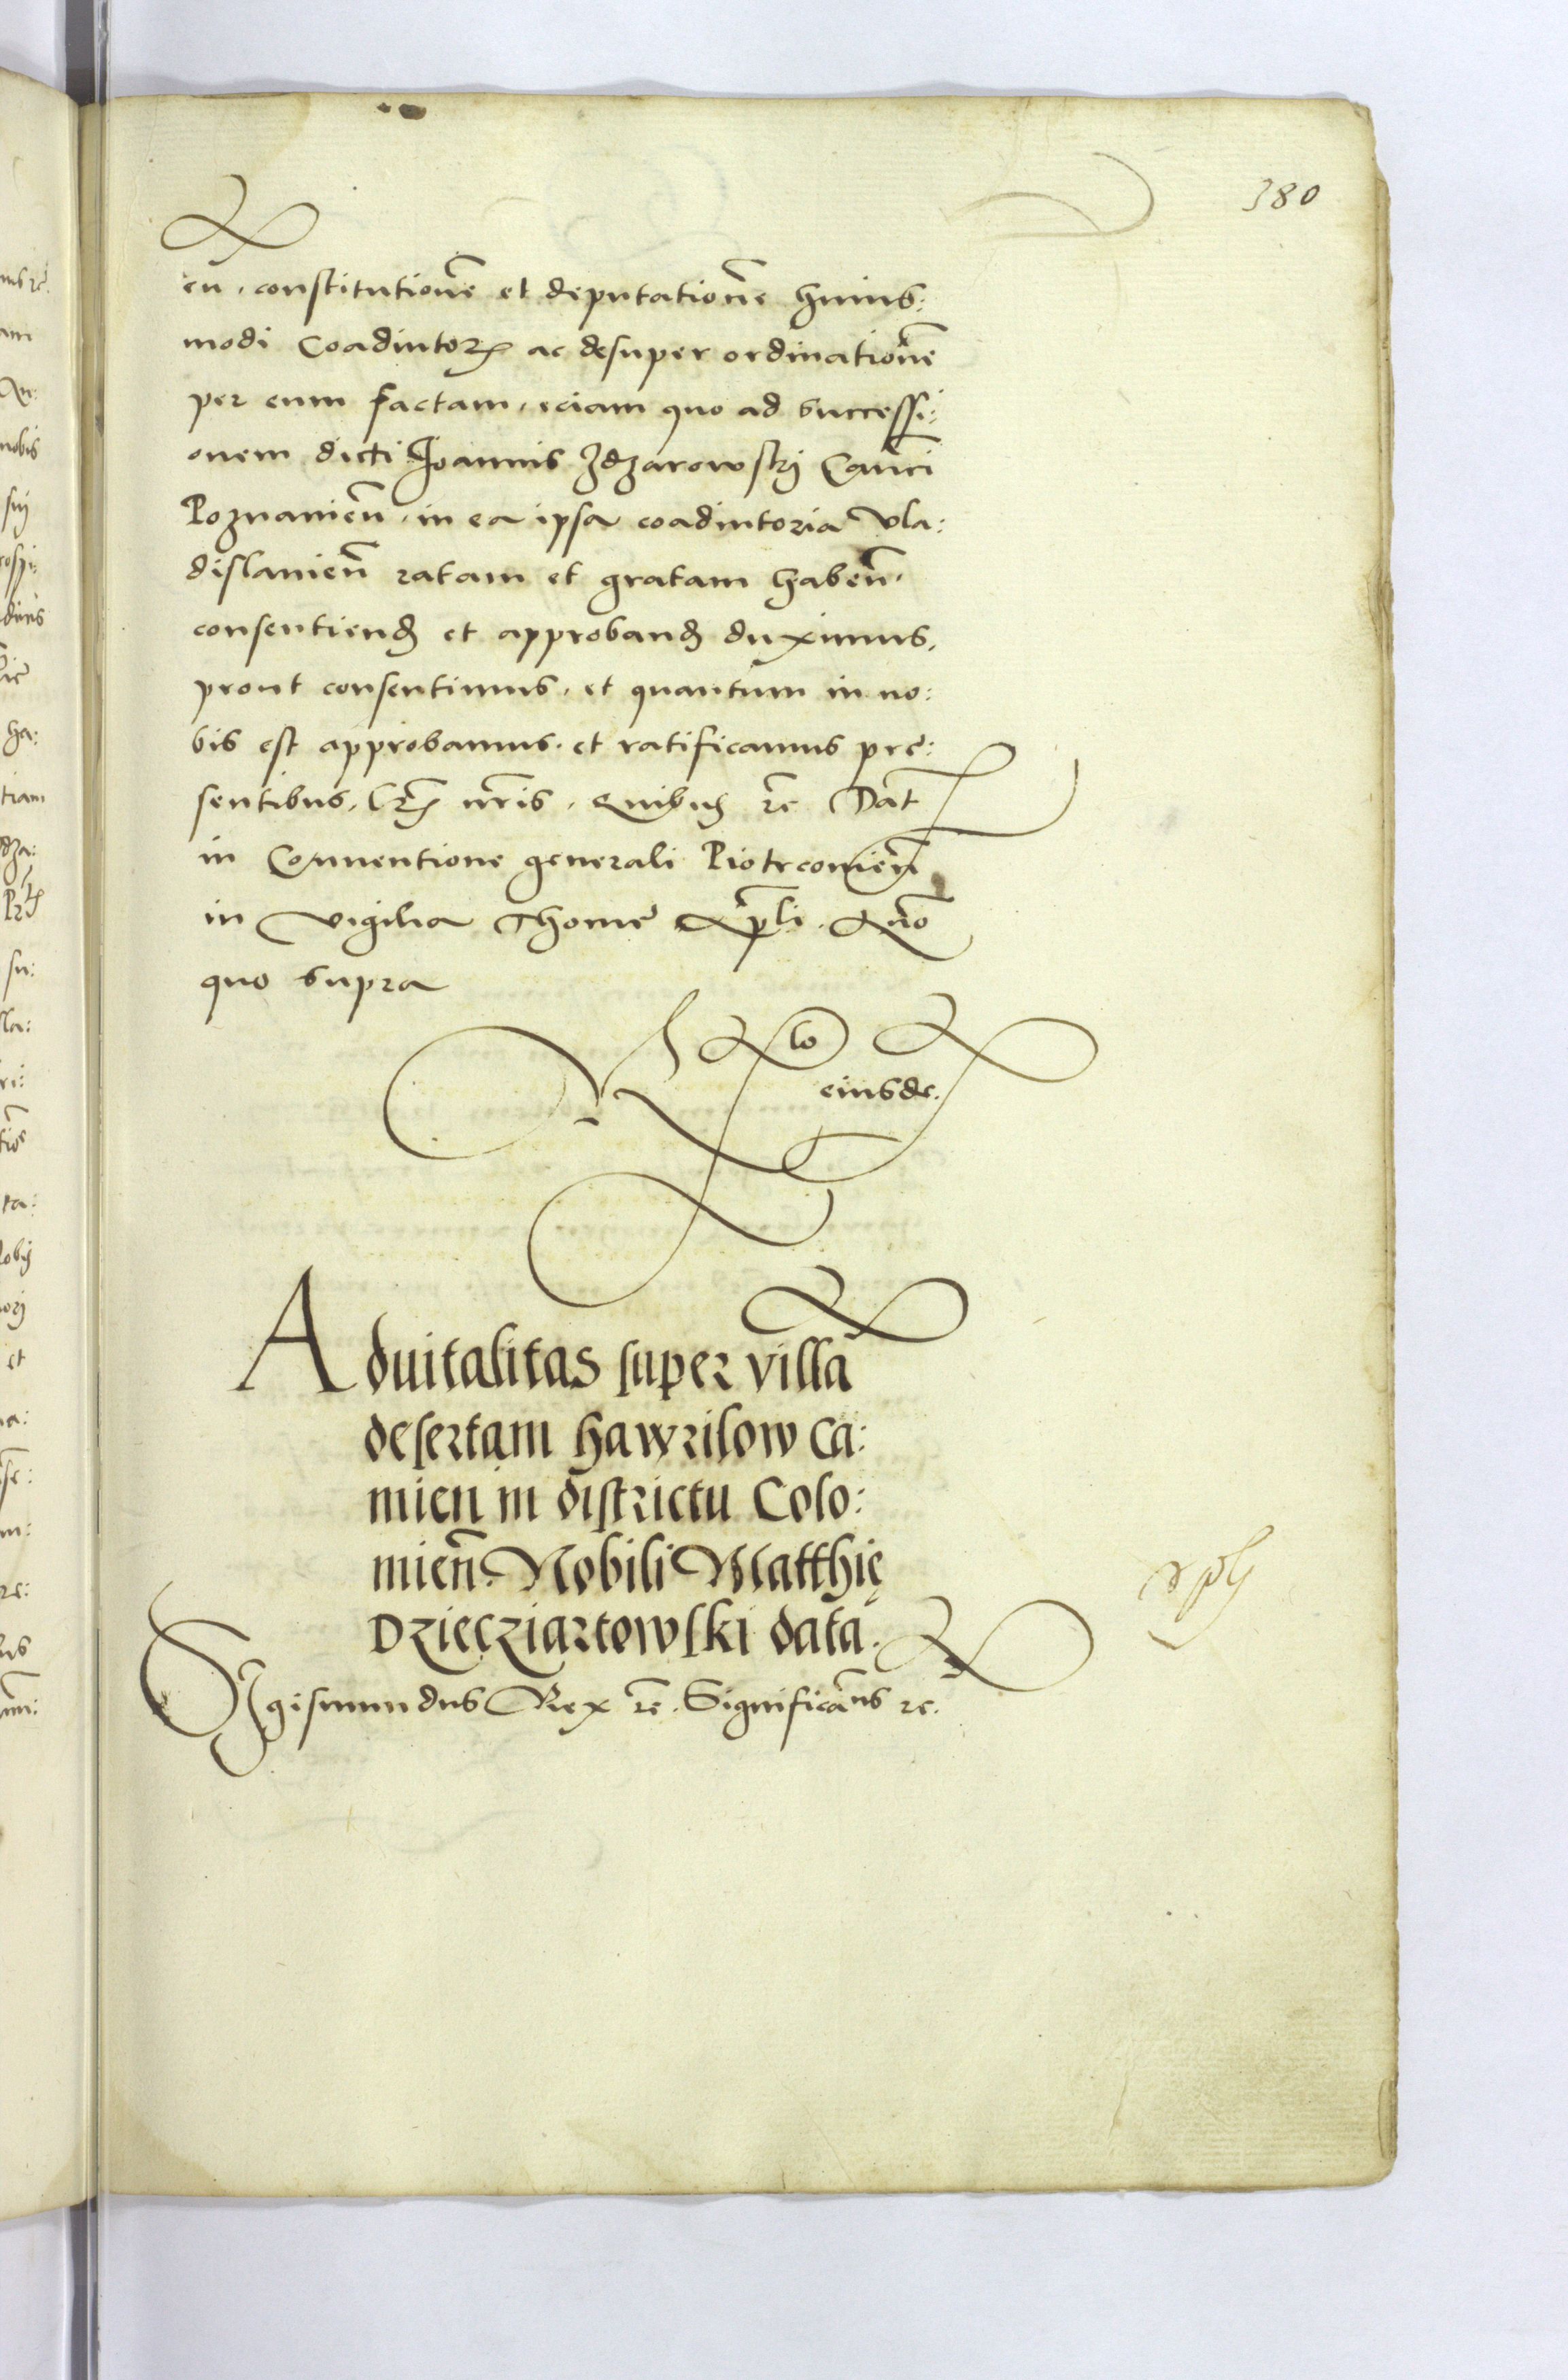 380
en. constitutionē et deputationē huius:
modi Coadiutorꝭ ac desuper ordinationē
per eum factam, eciam quo ad successi:
onem dicti Joannis Zdzarowskÿ Canci
Poznanien̄. in ea ipsa coadiutoria Vla:
dislauien̄ ratam et gratam haben̄.
consentienꝺ et approbanꝺ duximus,
prout consentimus, et quantum in no:
bis est approbamus. et ratificamus pre:
sentibus, lrꝭ nr̄is. Quibus rc̄ Dat
in Conuentione generali Piotrcouien̄
in Vigilia Thomę Apl̄i. Anō
quo supra
eiusde.
Aduitalitas super villā
desertam Hawrilow Ca:
mien in districtu Colo:
mien̄. Nobili Matthię
Dziecziartowski data.
Sigismundus Rex rc̄. Significam̄us rc.